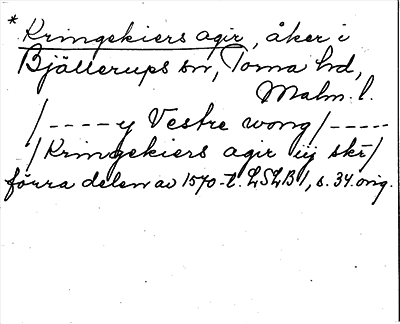 * Kringekiers agir, åker i
Bjällerups sn, Torna hd,
Malm. l.
/----y Vestre wong/-----
/Kringekiers agir iij skr/
förra delen av 1570-t. LSLB 1, s. 34. orig.